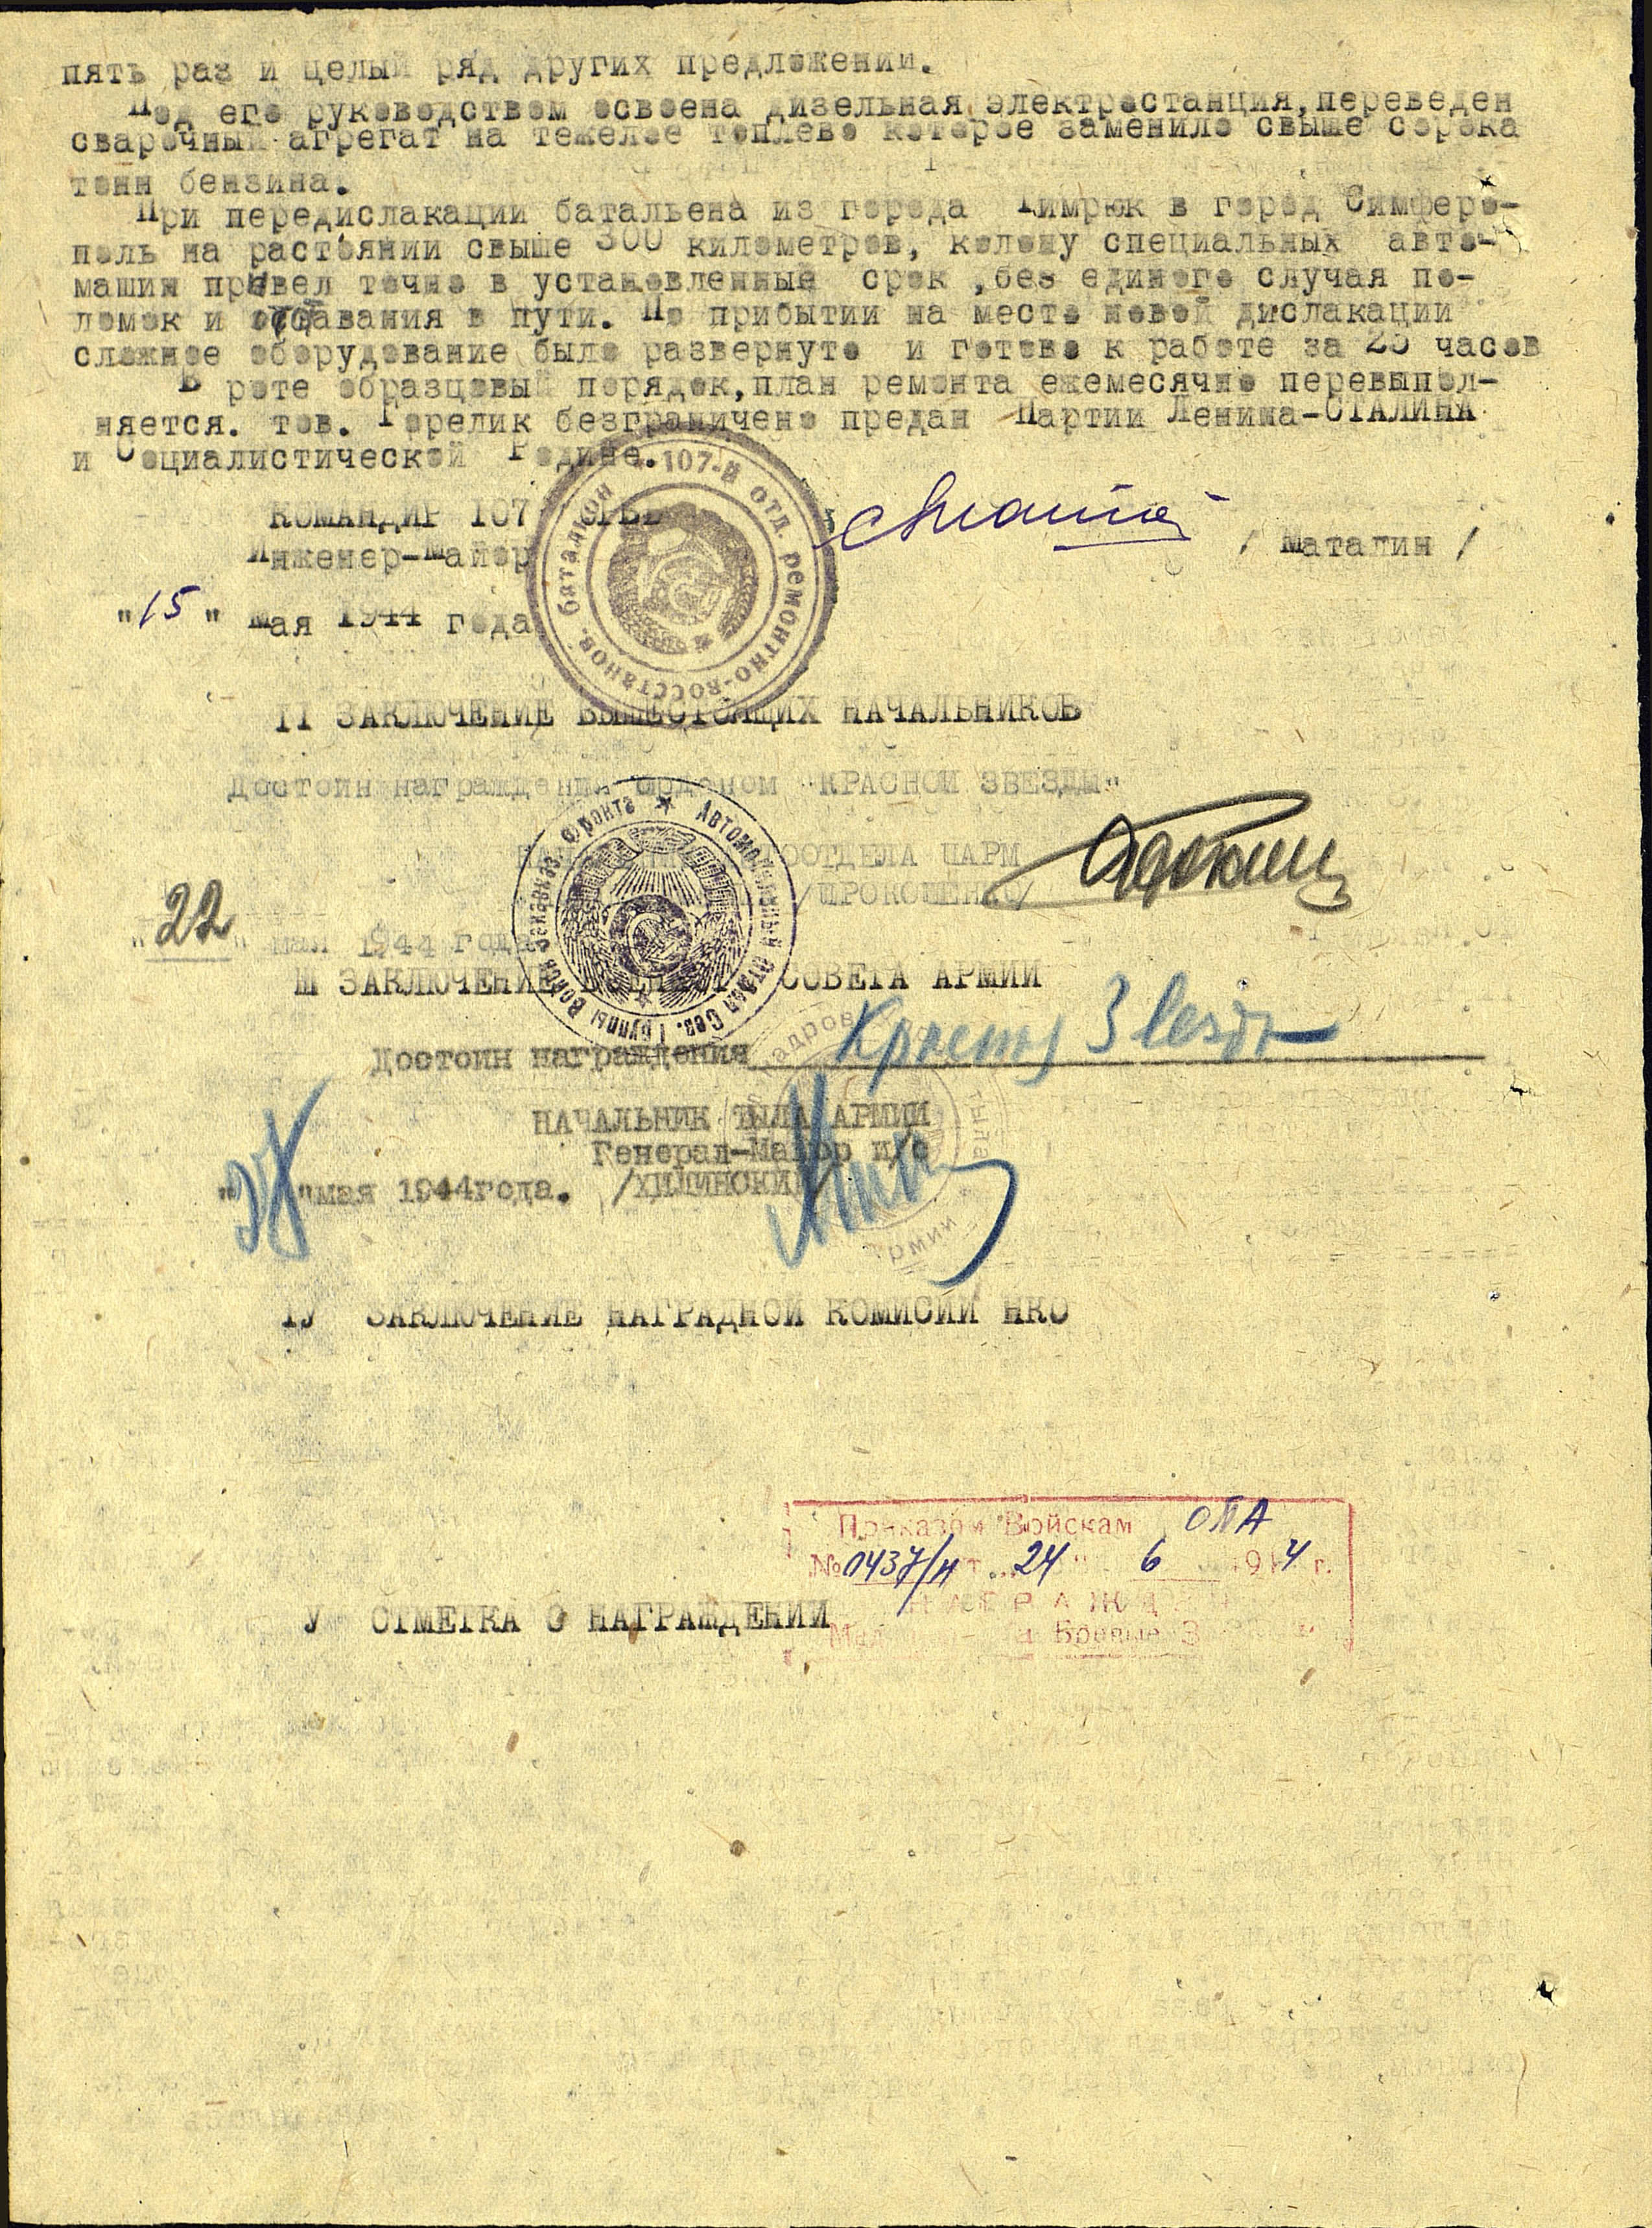 пять раз и целый ряд других предложений.
Под его руководством освоена дизельная электростанция,переведен
сварочный агрегат на тежелое топлево которое заменило свыше сорока
тонн бензина.
При передислакации баталь​ена из города Тимрюк в город Симферо-
поль на растоянии свыше 300 километров, колону специальных авто-
машин привел точно в установленный срок ,без единого случая по-
ломок и отставания в пути. По прибытии на место новой дислакации
сложное оборудование было развернуто и готово к работе за 25 часов
В роте образцовый порядок,план ремонта ежемесячно перевыпол-
няется. тов. Горелик безграничено предан Партии Ленина-СТАЛИНА
и Социалистической Родине.
КОМАНДИР 107 ОРВБ
Инженер-Майор / Маталин /
107-й отд. ремонтно-восстанов. батальон
"15" Мая 1944 года
II ЗАКЛЮЧЕНИЕ ВЫШЕСТОЯЩИХ НАЧАЛЬНИКОВ
Достоин награждения орденом "КРАСНОЙ ЗВЕЗДЫ"
ООТДЕЛА ПАРМ
/ПРОКОШЕНКО/
Автомобильный отдел Сев. Группы Войск Закавказ. Фронта
"22" мая 1944 года
Ш ЗАКЛЮЧЕНИЕ ВОЕННОГО СОВЕТА АРМИИ
Достоин награждения Красная Звезда
НАЧАЛЬНИК ТЫЛА АРМИИ
Генерал-Майор и/с
"мая 1944года. /ХИЛИНСКИЙ/
кадров
тыла
Армии
IУ ЗАКЛЮЧЕНИЕ НАГРАДНОЙ КОМИСИИ НКО
Приказом Войскам ОПА
№ 0437/н от 24 " 6 1944 г.
НАГРАЖДЕН
У ОТМЕТКА О НАГРАЖДЕНИИ
Медаль За Боевые З